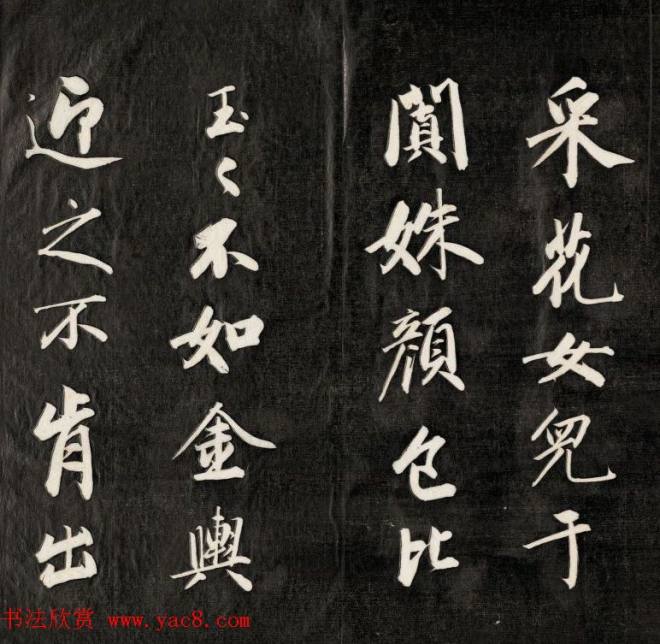 采花女兒于
闐姝顏色比
玉〻不如金輿
迎之不肯出
书法欣赏 www.yac8.com